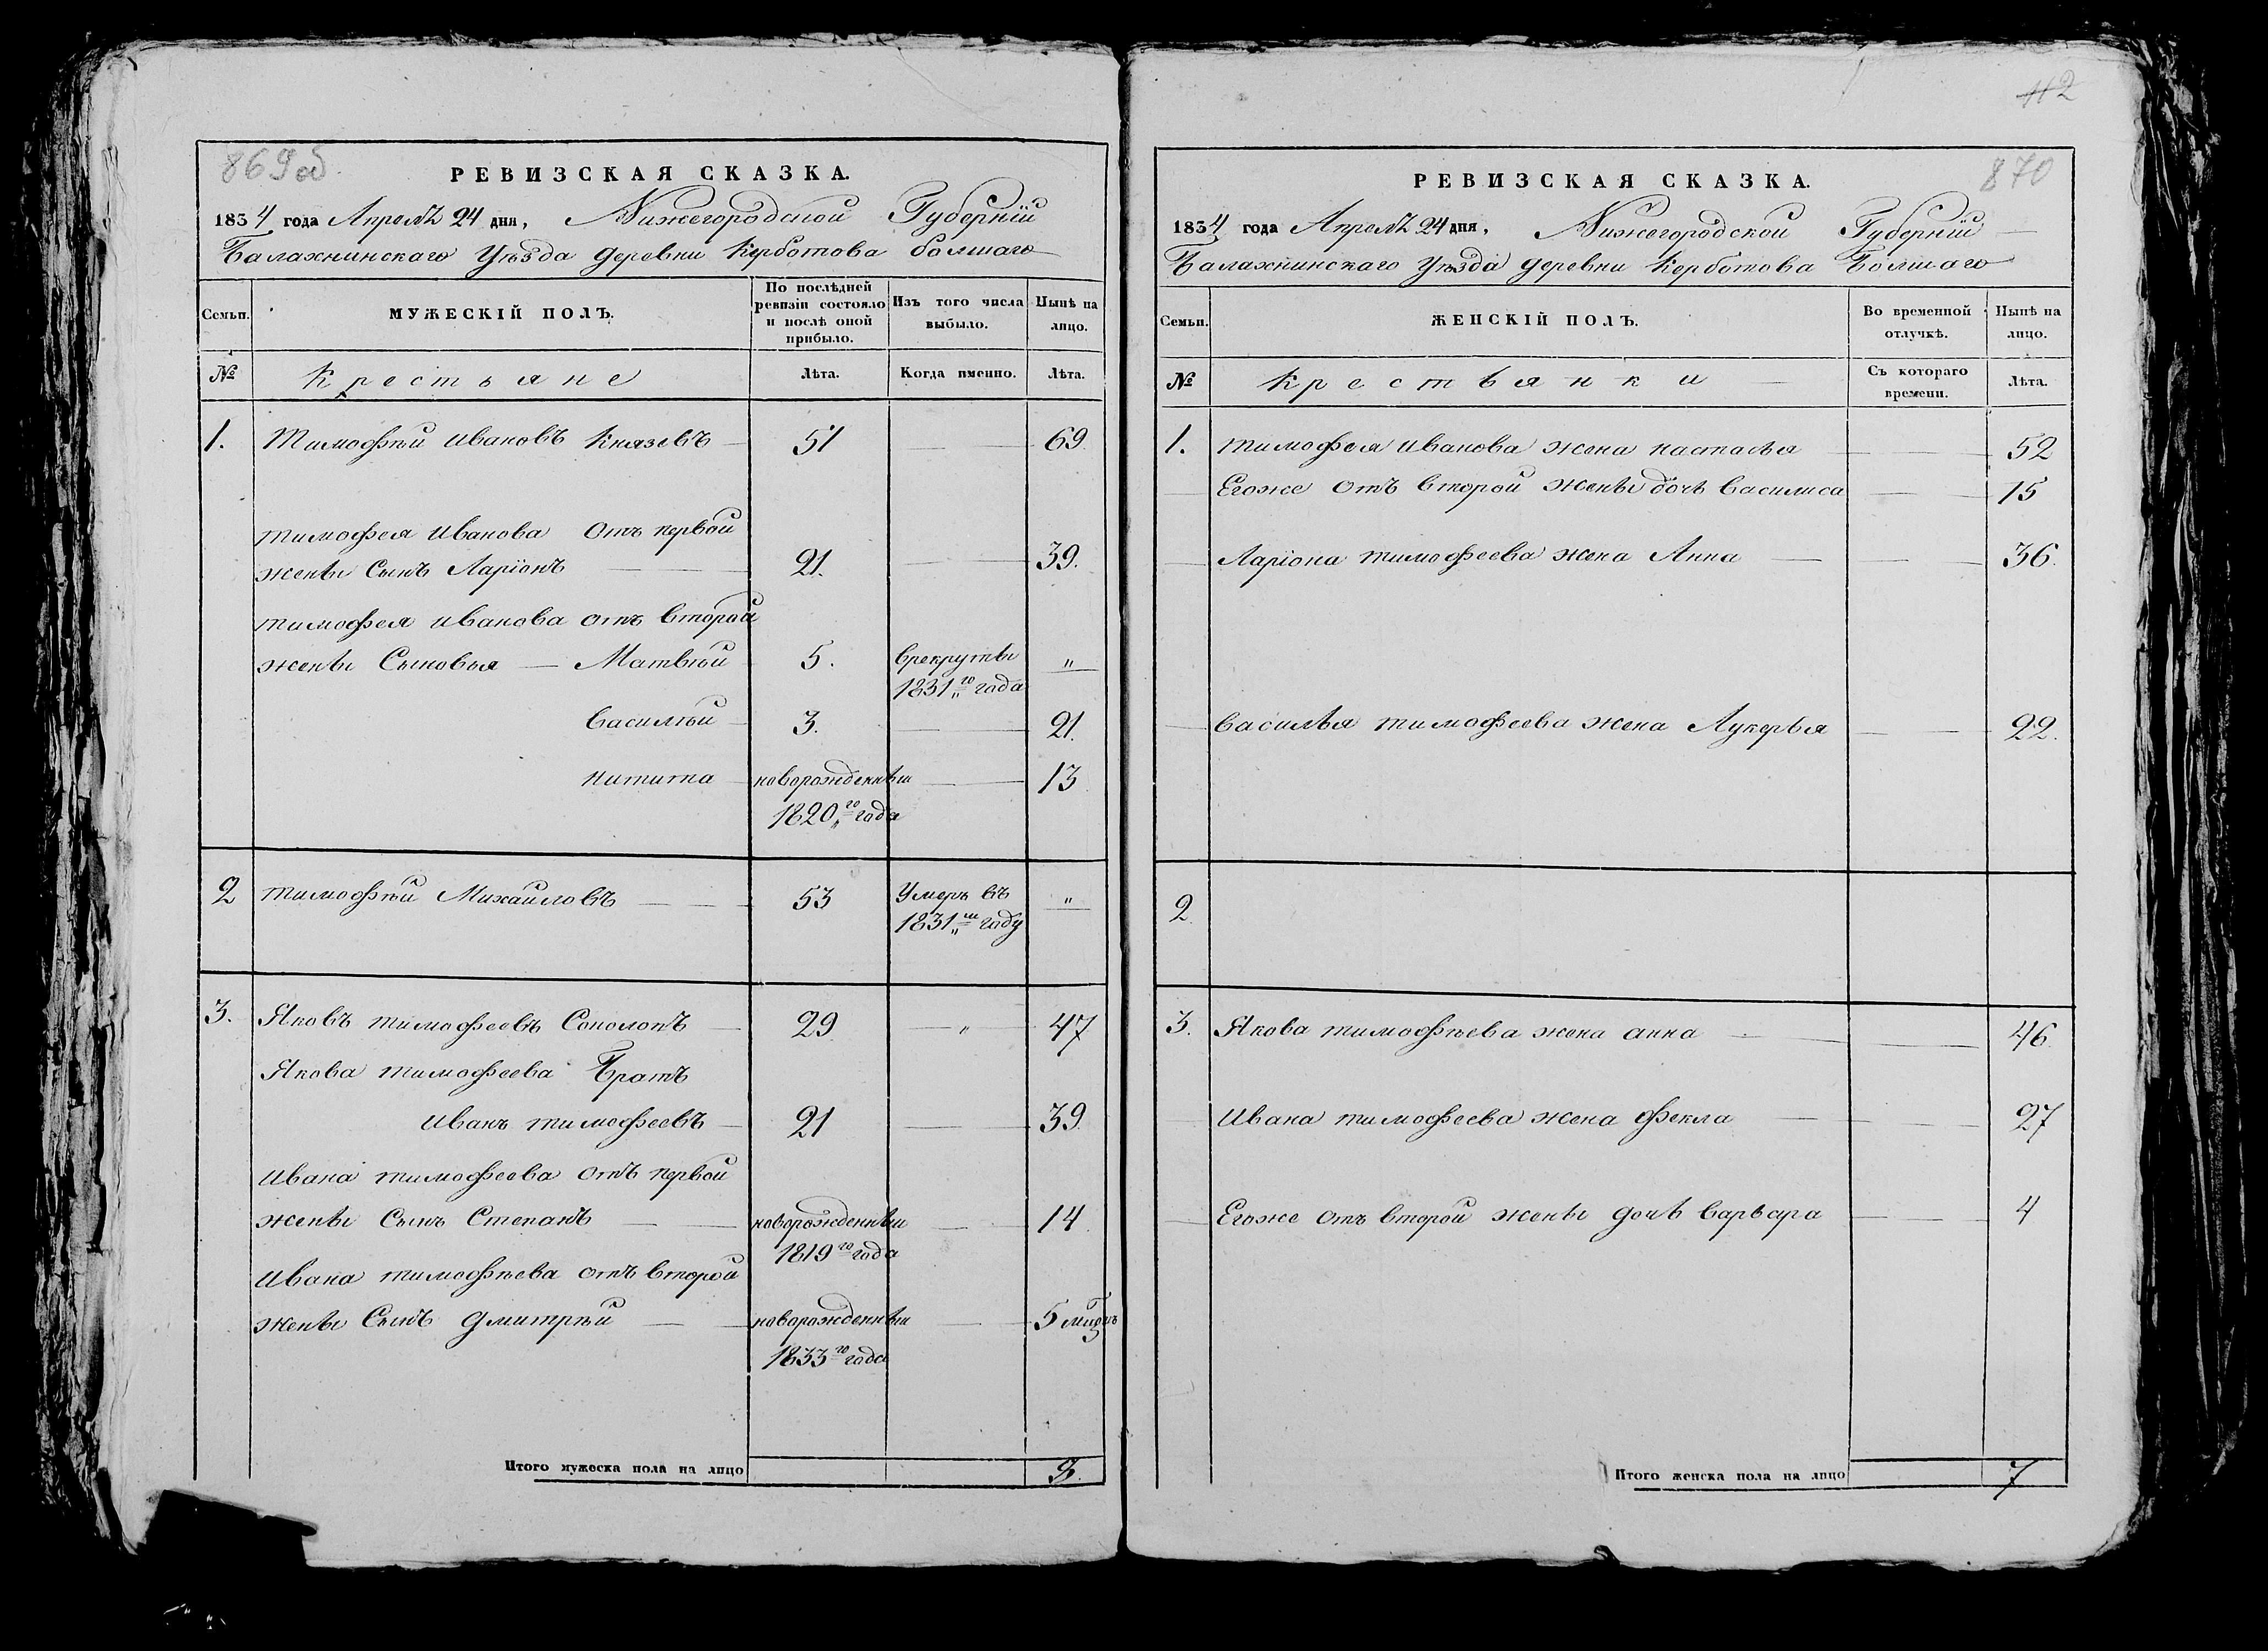 869 об.
РЕВИЗСКАЯ СКАЗКА.
1834 года Апреля 24 дня, Нижегородской Губернии
Балахнинскаго Уѣзда деревни Керботова болшаго
Семьи.
МУЖЕСКІЙ ПОЛЪ.
По послѣдней ревизіи состояло и послѣ оной прибыло.
Изъ того числа выбыло.
Нынѣ на лицо.
№
Крестьяне
Лѣта.
Когда именно.
Лѣта.
1. Тимофѣй Ивановъ Князевъ 51 69
тимофея Иванова отъ первой
жены Сынъ Ларіонъ 21. 39.
тимофея иванова отъ второй
жены Сыновья Матвѣй 5. врекруты „
1831го года
Василѣй 3. 21.
никита новорожденный 13
1820го года
2 тимофѣй Михайловъ 53 Умеръ въ „
1831м году
3. Яковъ тимофеевъ 29 „ 47
Якова тимофеева Братъ
Иванъ тимофеевъ 21 39
Ивана тимофеева отъ первой
жены Сынъ Степанъ новорожденный 14
1819го года
Ивана тимофѣева отъ второй
жены Сынъ дмитрѣй новорожденный 5
1833го года
Итого мужеска пола на лицо
112
870
РЕВИЗСКАЯ СКАЗКА.
1834 года Апреля 24 дня, Нижегородской Губернии
Балахнинскаго Уѣзда деревни Керботова Болшаго
Семьи.
ЖЕНСКІЙ ПОЛЪ.
Во временной отлучкѣ.
Нынѣ на лицо.
№
Крестьянки
Съ котораго времени.
Лѣта.
1. тимофея Иванова жена настасья 52
Егоже отъ второй жены дочь Василиса 15
Ларіона тимофеева жена Анна 36.
василья тимофеева жена Лукерья 22.
2
3. Якова тимофѣева жена анна 46
Ивана тимофеева жена фекла 27
Егоже отъ второй жены дочь варвара 4
Итого женска пола на лицо 7